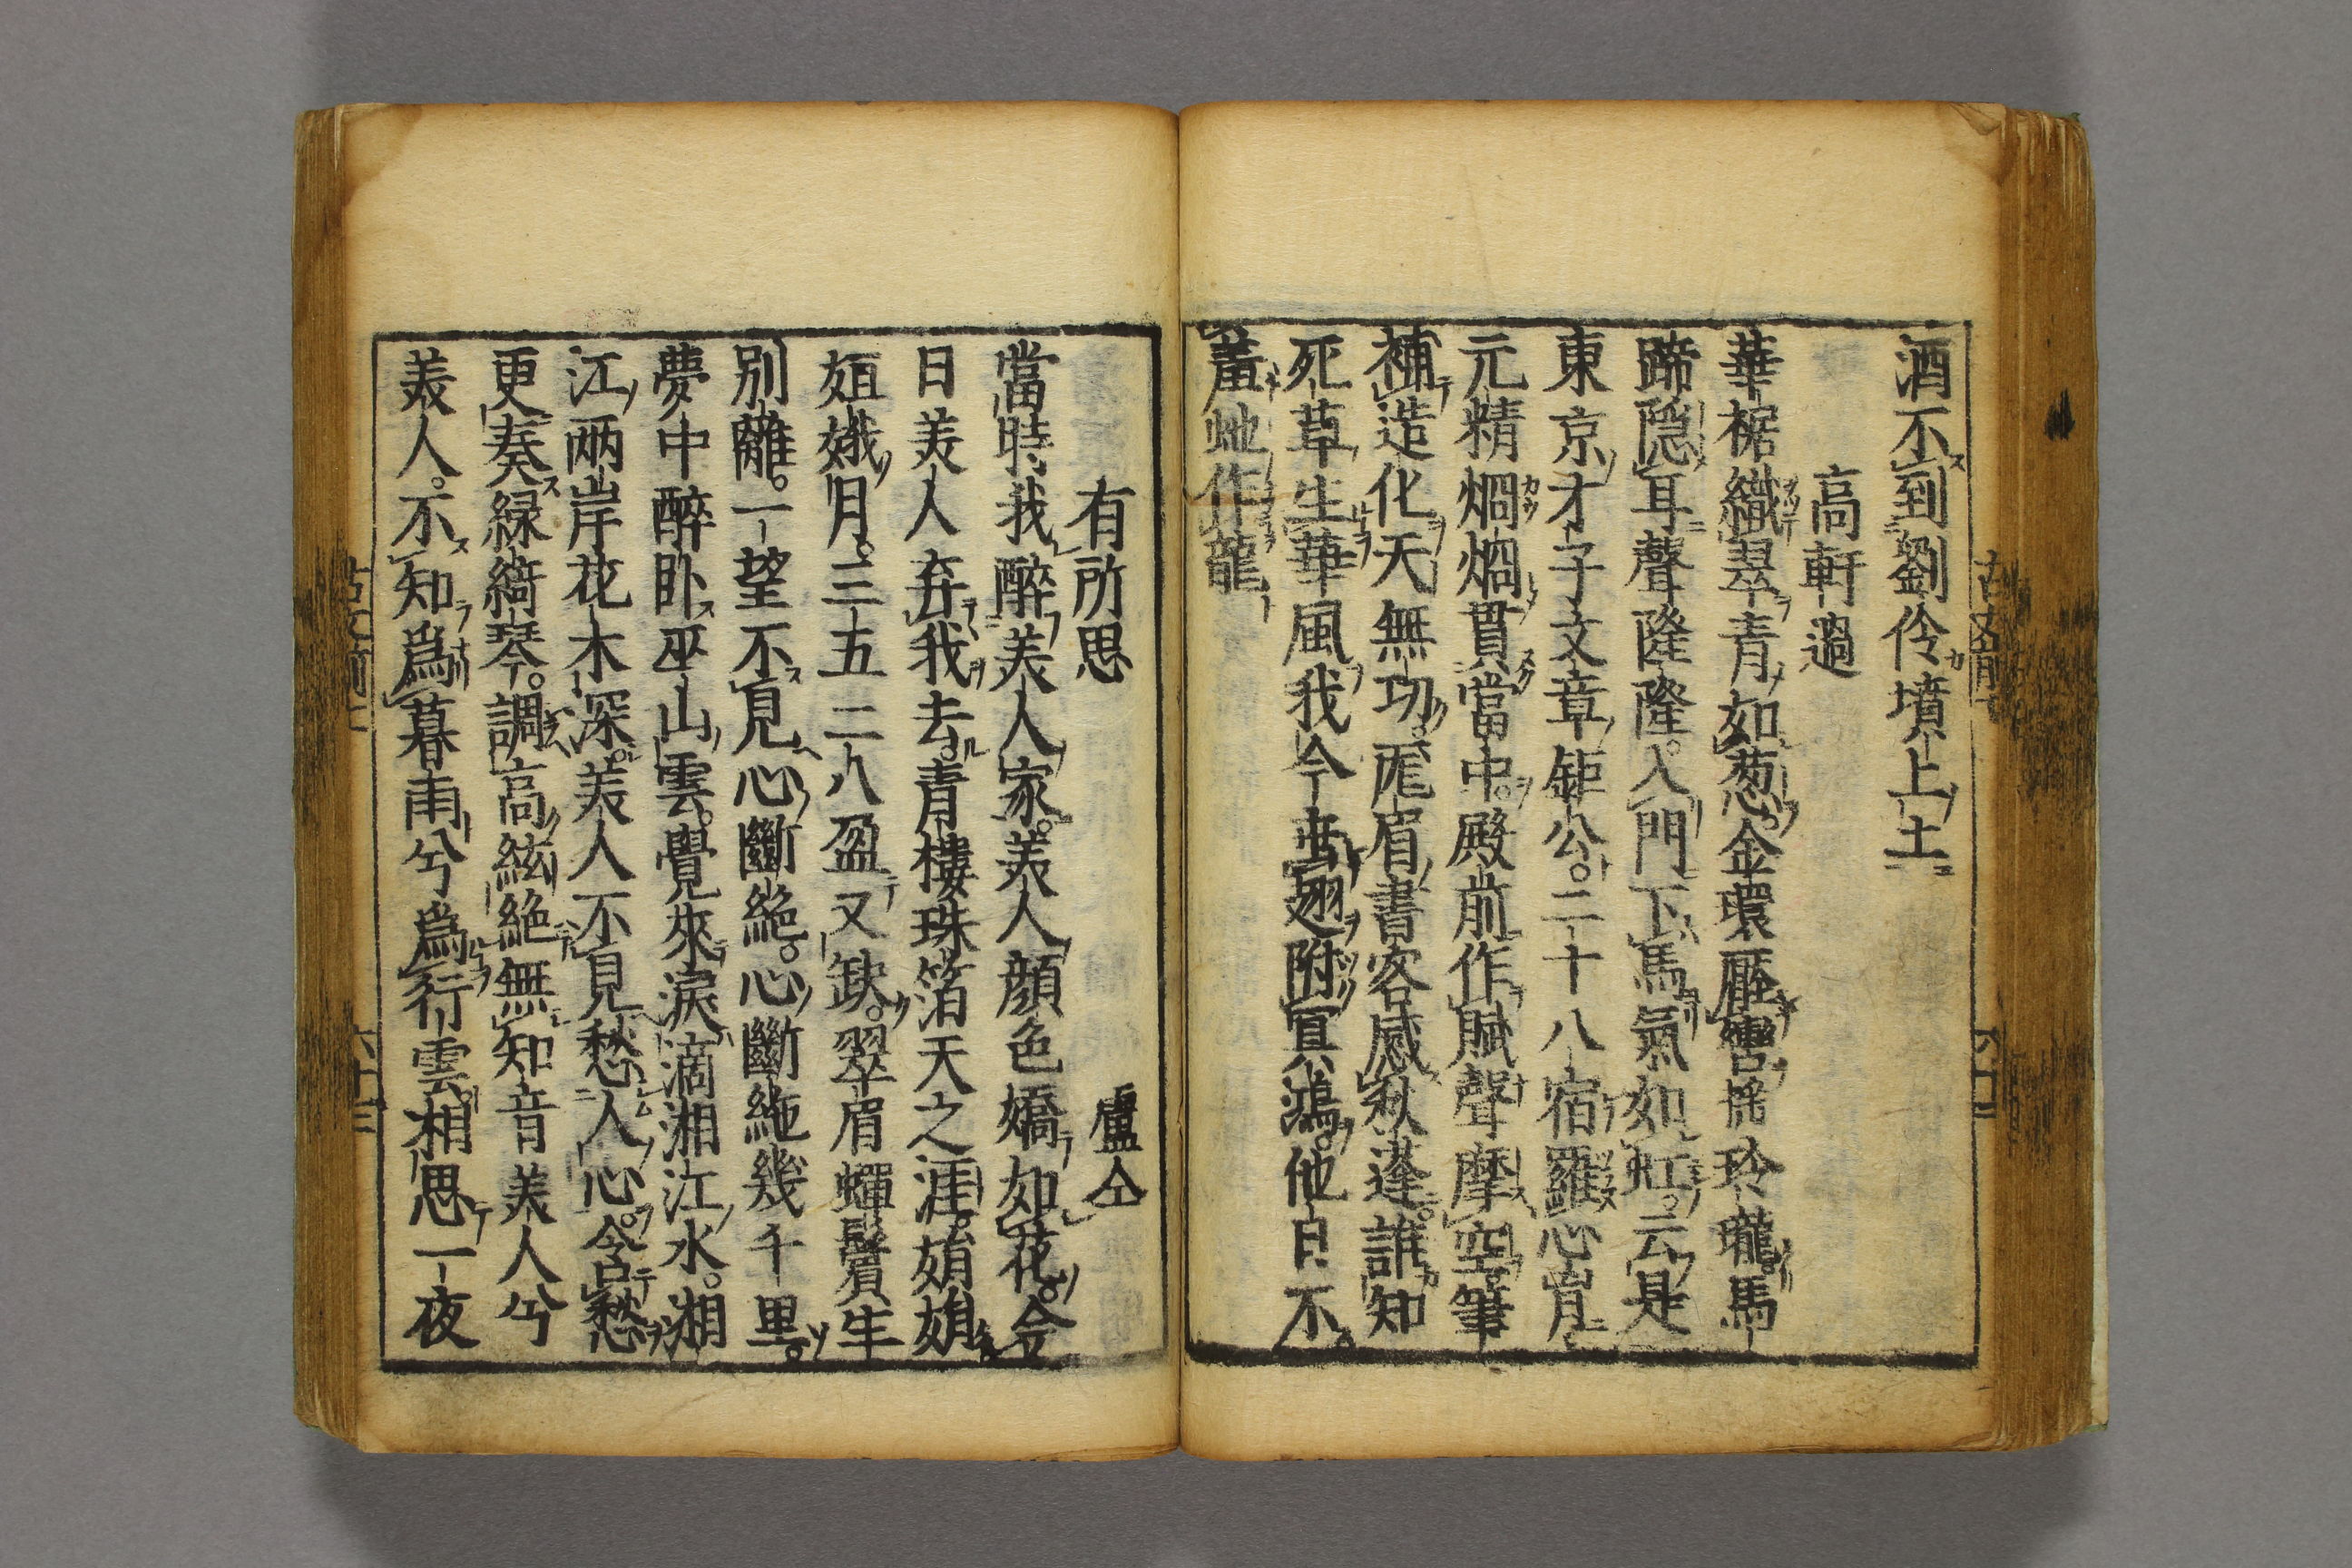 酒不到劉伶墳上土
高軒過
華裾織翠青如葱。金環壓轡搖玲瓏。馬
蹄隠耳聲隆隆。入門下馬氣如虹。云是
東京才子文章鉅公。二十八宿羅心胷。
元精烱烱貫當中。殿前作賦聲摩空。筆
補造化天無功。厖眉書客感秋蓬。誰知
死草生華風我今垂翅附冥鴻。他日不
羞虵作龍
有所思 盧仝
當時我醉美人家。美人顔色嬌如花。今
日美人弃我去。青樓珠箔天之涯。娟娟
姮娥月。三五二八盈又缺。翠眉蟬鬢生
別離。一望不見心斷絶。心斷絶幾千里。
夢中醉卧巫山雲。覺來淚滴湘江水。湘
江兩岸花木深。美人不見愁人心。含愁
更奏緑綺琴。調高絃絶無知音美人兮
美人。不知爲暮雨兮爲行雲。相思一夜